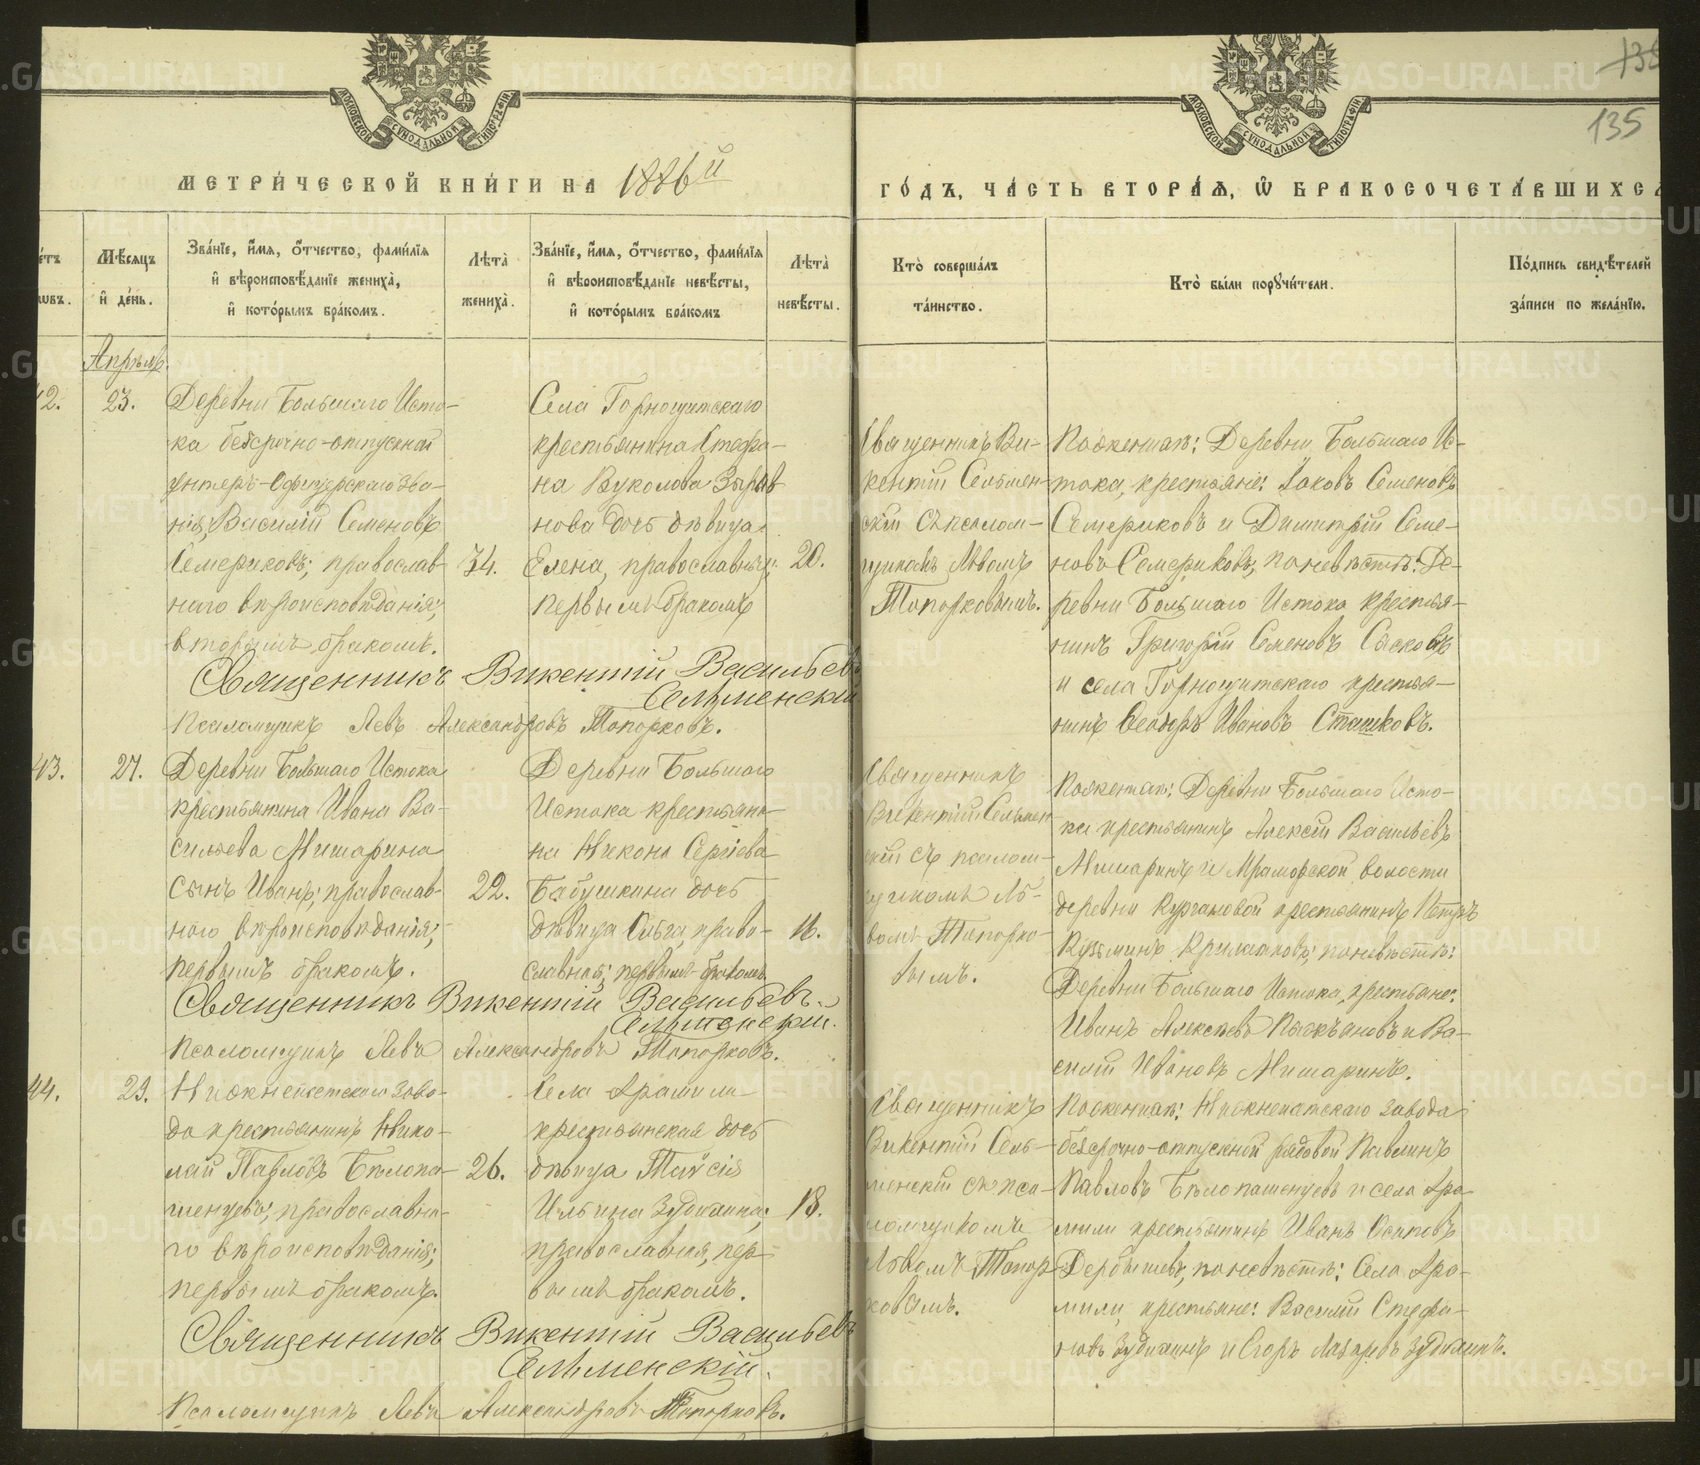 138
135
МОСКОВСКОЙ СУНОДАЛЬНОЙ ТИПОГРАФІИ
МОСКОВСКОЙ СУНОДАЛЬНОЙ ТИПОГРАФІИ
МЕТРИ́ЧЕСКОЙ КНИ́ГИ НА 1886й
ГО́ДЪ, ЧА́СТЬ ВТОРА́Я, Ѿ БРАКОСОЧЕТА́ВШИХСЯ
Мѣ́сяцъ
и҆ де́нь.
Зва́нїе, и҆́мя, ѻ҆́тчество, фами́лїя
и҆ вѣроисповѣ́данїе жениха̀,
и҆ кото́рымъ бра́комъ.
Лѣта̀
жениха̀.
Зва́нїе, и҆́мя, ѻ҆́тчество, фами́лїя
и҆ вѣроисповѣ́данїе невѣ́сты,
и҆ кото́рымъ бра́комъ
Лѣта̀
невѣ́сты.
Кто̀ соверша́лъ
та́инство.
Кто̀ бы́ли порꙋчи́тели.
По́дпись свидѣ́телей
за́писи по жела́нїю.
Апрѣль
42.
23.
Деревни Большаго Исто-
ка безсрочно-отпускной
унтеръ-офицерскаго зва-
нія, Василій Семеновъ
Семериковъ; православ-
наго вѣроисповѣданія;
вторымъ бракомъ.
34.
Села Горнощитскаго
крестьянина Стефа-
на Вуколова Зыря-
нова дочь дѣвица
Елена, православныя;
первымъ бракомъ
20.
Священникъ Ви-
кентій Сельмен-
скій съ псалом-
щикомъ Львомъ
Топорковымъ.
По женихѣ: Деревни Большаго Ис-
тока, крестьяне: Іаковъ Семеновъ
Семериковъ и Димитрій Семе-
новъ Семериковъ; по невѣстѣ: Де-
ревни Большаго Истока крестья-
нинъ Григорій Семеновъ Сысковъ
и села Горнощитскаго крестья-
нинъ Ѳеодоръ Ивановъ Сташковъ.
Священникъ Викентій Васильевъ
Сельменскій
Псаломщикъ Левъ Александровъ Топорковъ.
43.
27.
Деревни Большаго Истока
крестьянина Ивана Ва-
сильева Мишарина
сынъ Иванъ; православ-
наго вѣроисповѣданія;
первымъ бракомъ.
22.
Деревни Большаго
Истока крестьяни-
на Никона Сергіева
Бабушкина дочь
дѣвица Ольга, право-
славная; первымъ бракомъ
16.
Священникъ
Викентій Сельмен-
скій съ псалом-
щикомъ Ль-
вомъ Топорко-
вымъ.
По женихѣ: Деревни Большаго Исто-
ка крестьянинъ Алексій Васильевъ
Мишаринъ и Мраморской волости
деревни Кургановой крестьянинъ Петръ
Кузьминъ Крылатковъ; по невѣстѣ:
Деревни Большаго Истока, крестьяне:
Иванъ Алексѣевъ и Ва-
силій Ивановъ Мишаринъ.
Священникъ Викентій Васильевъ
Сельменскій.
Псаломщикъ Левъ Александровъ Топорковъ.
44.
29.
Нижнеисетскаго заво-
да крестьянинъ Нико-
лай Павловъ Бѣлопа-
шенцевъ; православна-
го вѣроисповѣданія;
первымъ бракомъ.
26.
Села Арамили
крестьянская дочь
дѣвица Таисія
Ильина Зудихина;
православная, пер-
вымъ бракомъ.
18.
Священникъ
Викентій Сель-
менскій съ пса-
ломщикомъ
Львомъ Топор-
ковымъ.
По женихѣ: Нижнеисетскаго завода
безсрочно-отпускной рядовой Павлинъ
Павловъ Бѣлопашенцевъ и села Ара-
мили крестьянинъ Иванъ Осиповъ
Дербышевъ, по невѣстѣ: Села Ара-
мили, крестьяне: Василій Стефа-
новъ Зудихинъ и Егоръ Лазаревъ Зудихинъ.
Священникъ Викентій Васильевъ
Сельменскій.
Псаломщикъ Левъ Александровъ Топорковъ.
METRIKI.GASO-URAL.RU